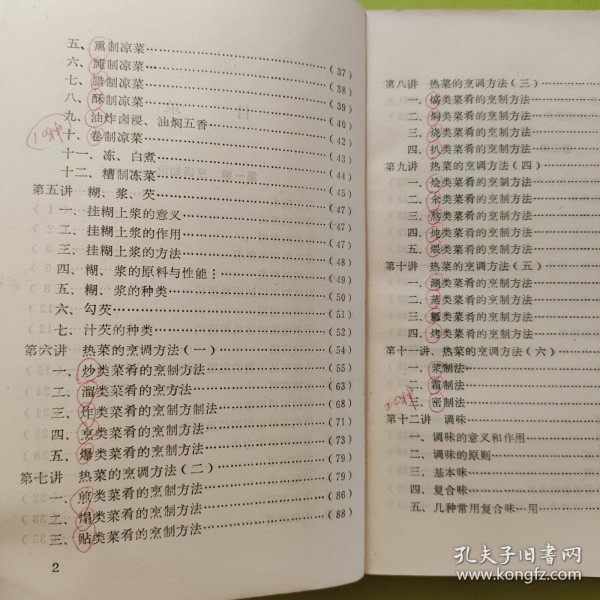 五、熏制凉菜……(37)
六、腌制凉菜……(38)
七、腊制凉菜……(38)
八、酥制凉菜……(39)
九、油炸卤浸、油焖五香……(40)
十、卷制凉菜……(42)
十一、冻、白煮……(43)
十二、糟制冻菜……(44)
第五讲 糊、浆、芡……(45)
一、挂糊上浆的意义……(47)
二、挂糊上浆的作用……(47)
三、挂糊上浆的方法……(48)
四、糊、浆的原料与性能……(49)
五、糊、浆的种类……(50)
六、勾芡……(51)
七、汁芡的种类……(52)
第六讲 热菜的烹调方法(一)……(54)
一、炒类菜肴的烹制方法……(55)
二、溜类菜肴的烹方法……(63)
三、炸类菜肴的烹制方制法……(68)
四、烹类菜肴的烹制方法……(71)
五、爆类菜肴的烹制方法……(73)
第七讲 热菜的烹调方法(二)……(79)
一、煎类菜肴的烹制方法……(79)
二、塌类菜肴的烹制方法……(86)
三、贴类菜肴的烹制方法……(88)
2
第八讲 热菜的烹调方法(三)……
一、类菜肴的烹制方法……
二、焖类菜肴的烹制方法……
三、烧类菜肴的烹制方法……
四、扒类菜肴的烹制方法……
第九讲 热菜的烹调方法(四)……
一、烩类菜肴的烹制方法……
二、汆类菜肴的烹制方法……
三、类菜肴的烹制方法……
四、炖类菜肴的烹制方法……
五、煨类菜肴的烹制方法……
第十讲 热菜的烹调方法(五)……
一、涮类菜肴的烹制方法……
二、蒸类菜肴的烹制方法……
三、类菜肴的烹制方法……
四、烤类菜肴的烹制方法……
第十一讲、热菜的烹调方法(六)……
一、浆制法……
二、霜制法……
三、密制法……
第十二讲 调味……
一、调味的意义和作用……
二、调味的原则……
三、基本味……
四、复合味……
五、几种常用复合味一用……
孔夫子旧书网
www.kongfz.com